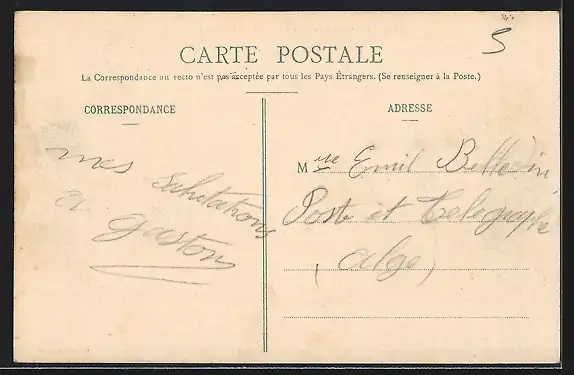 5
CARTE POSTALE
La Correspondance au recto n'est pas acceptée par tous les Pays Étrangers. (Se renseigner à la Poste.)
CORRESPONDANCE
mes salutations
a gaston
ADRESSE
M Emil
Poste et Telegraphe
(alge)